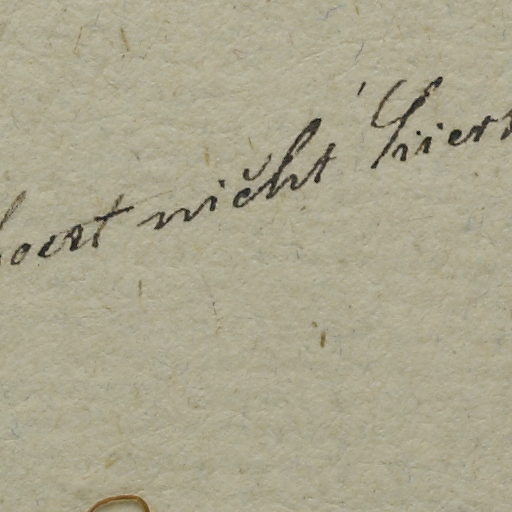 hoert nicht hier